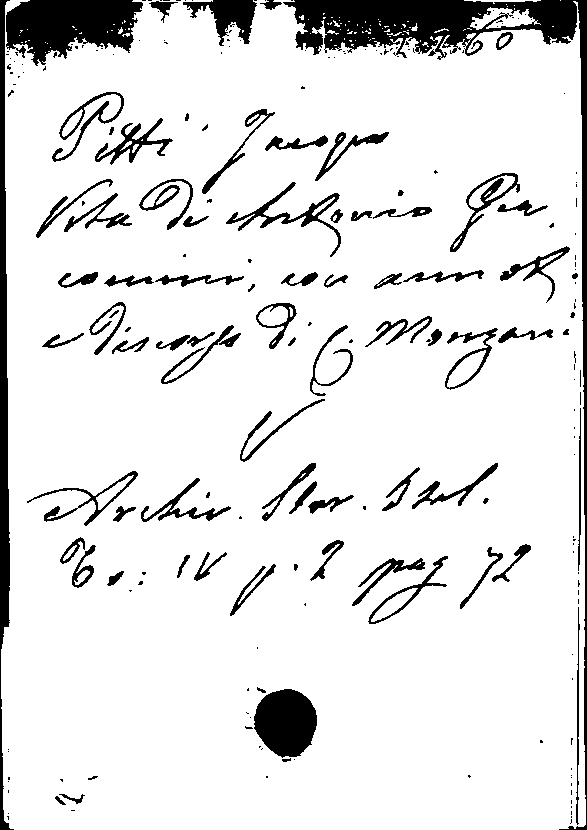 2260
Pitti Jacopo
Vita di Antonio Gia
comini, con annot.
e discorso di C. Monzani
Archiv. Stor. Ital.
To: IV p. 2 pag 72
2